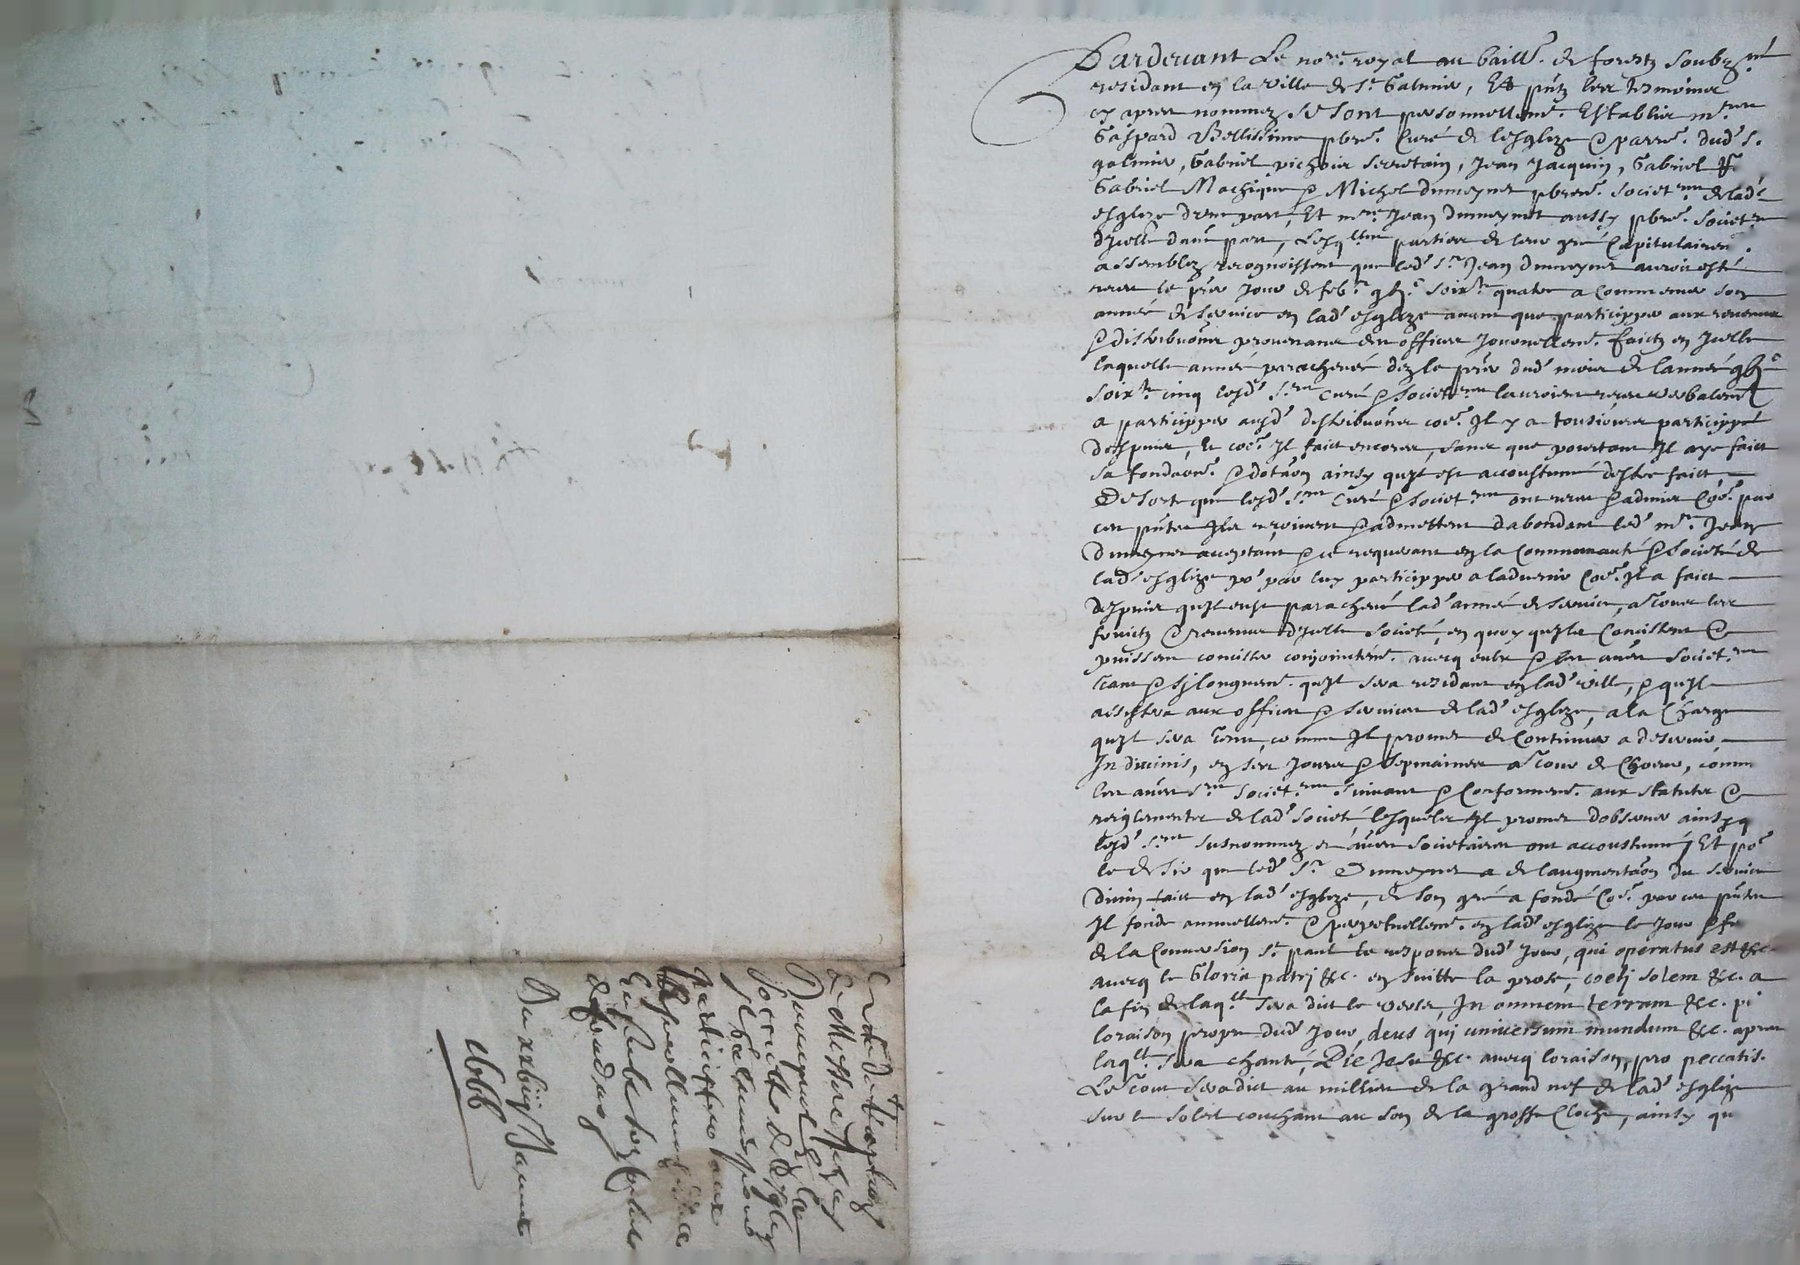 Pardevant Le nore. royal au baille. de forestz soubz.né
residant en la ville de St Galmier, Et pntz les tesmoins
cy apres nommez se sont personnellemt. Establis mres.
Gaspard Bellissime pbre. Curé de lesglize & parre. dud. St.
galmier, Gabriel pichoir secretain, Jean Jacquin, Gabriel
Gabriel Machique & Michel Dumeynet pbres. societres de lad.
esglize d'une part, Et mre. Jean Dumeynet aussy pbre. societre
d'icelle dautre part, Lesqlles parties de leur gré Capitulairemt.
assemblez recognoissent que led. sr Jean Dumeynet auroit esté
receu le pier Jour de febr. gbic soixte quatre a Commencer son
année de service en lad. esglize avant que participper aux revenus
& distributions provenans des offices Journellemt. faictz en Icelle
laquelle année parachevée dez le pier dud. mois de lannée gbic
soixte cinq lesd. srs Curé & societres lauroient receu verbalemt
a participper ausd. distributions coe. Il y a tousiours particippé
despuis, Et coe. Il faict encores, sans que pourtant Il aye faict
sa fondaon. & dotaon ainsy qu'il est accoustumé destre faict
De sorte que lesd. srs Curé & societres ont receu & admis Coe. par
ces pntes Ilz reçoivent & admettent dabondant led. mre. Jean
Dumeynet acceptant & ce requerant en la Communauté & societé de
lad. esglize po. par luy participper a ladvenir Coe. Il a faict
despuis qu'il eust parachevé lad. année de service, a tous les
fruictz & revenus d'icelle societé, en quoy qu'ilz Consistent &
puissent consister conjoinctemt. avecq eulx & les autres societres
tant & sy longuemt. qu'il sera residant en lad. ville, & qu'il
assistera aux offices & services de lad. esglize, a la Charge
qu'il sera tenu, comme Il promet de Continuer a deservir
In divinis, en ses Jours & sepmaines a tour de Choeur, comme
les autres srs societres suivant & Conformemt. aux statutz &
reiglementz de lad. societé lesquelz Il promet dobserver ainsy q
lesd. srs susnommez et autres societaires ont accoustumé, Et po.
le desir que led. sr Dumeynet a de laugmentaon du service
divin faict en lad. esglize, de son gré a fondé Coe. par ces pntes
Il fonde annuellemt. & perpetuellemt. en lad. esglize le Jour &
de la Conversion St paul le respons dud. Jour, qui operatus est &c.
avecq le Gloria patri &c. en suitte la prose, coeli solem &c. a
la fin de laqlle sera dict le verset, In omnem terram &c. pi
loraison propre dud. Jour, deus qui universum mundum &c. apres
laqlle sera chanté, Pie Jesu &c. avecq loraison, pro peccatis.
Le tout sera dict au millieu de la grand nef de lad. esglize
sur le soleil couchant au son de la grosse Cloche, ainsy qu
de Messire Jean
Dumeynet
societté de lesglize
St Galmier pour
participper aux
de fondaon
Du xxviij Janvier
1666